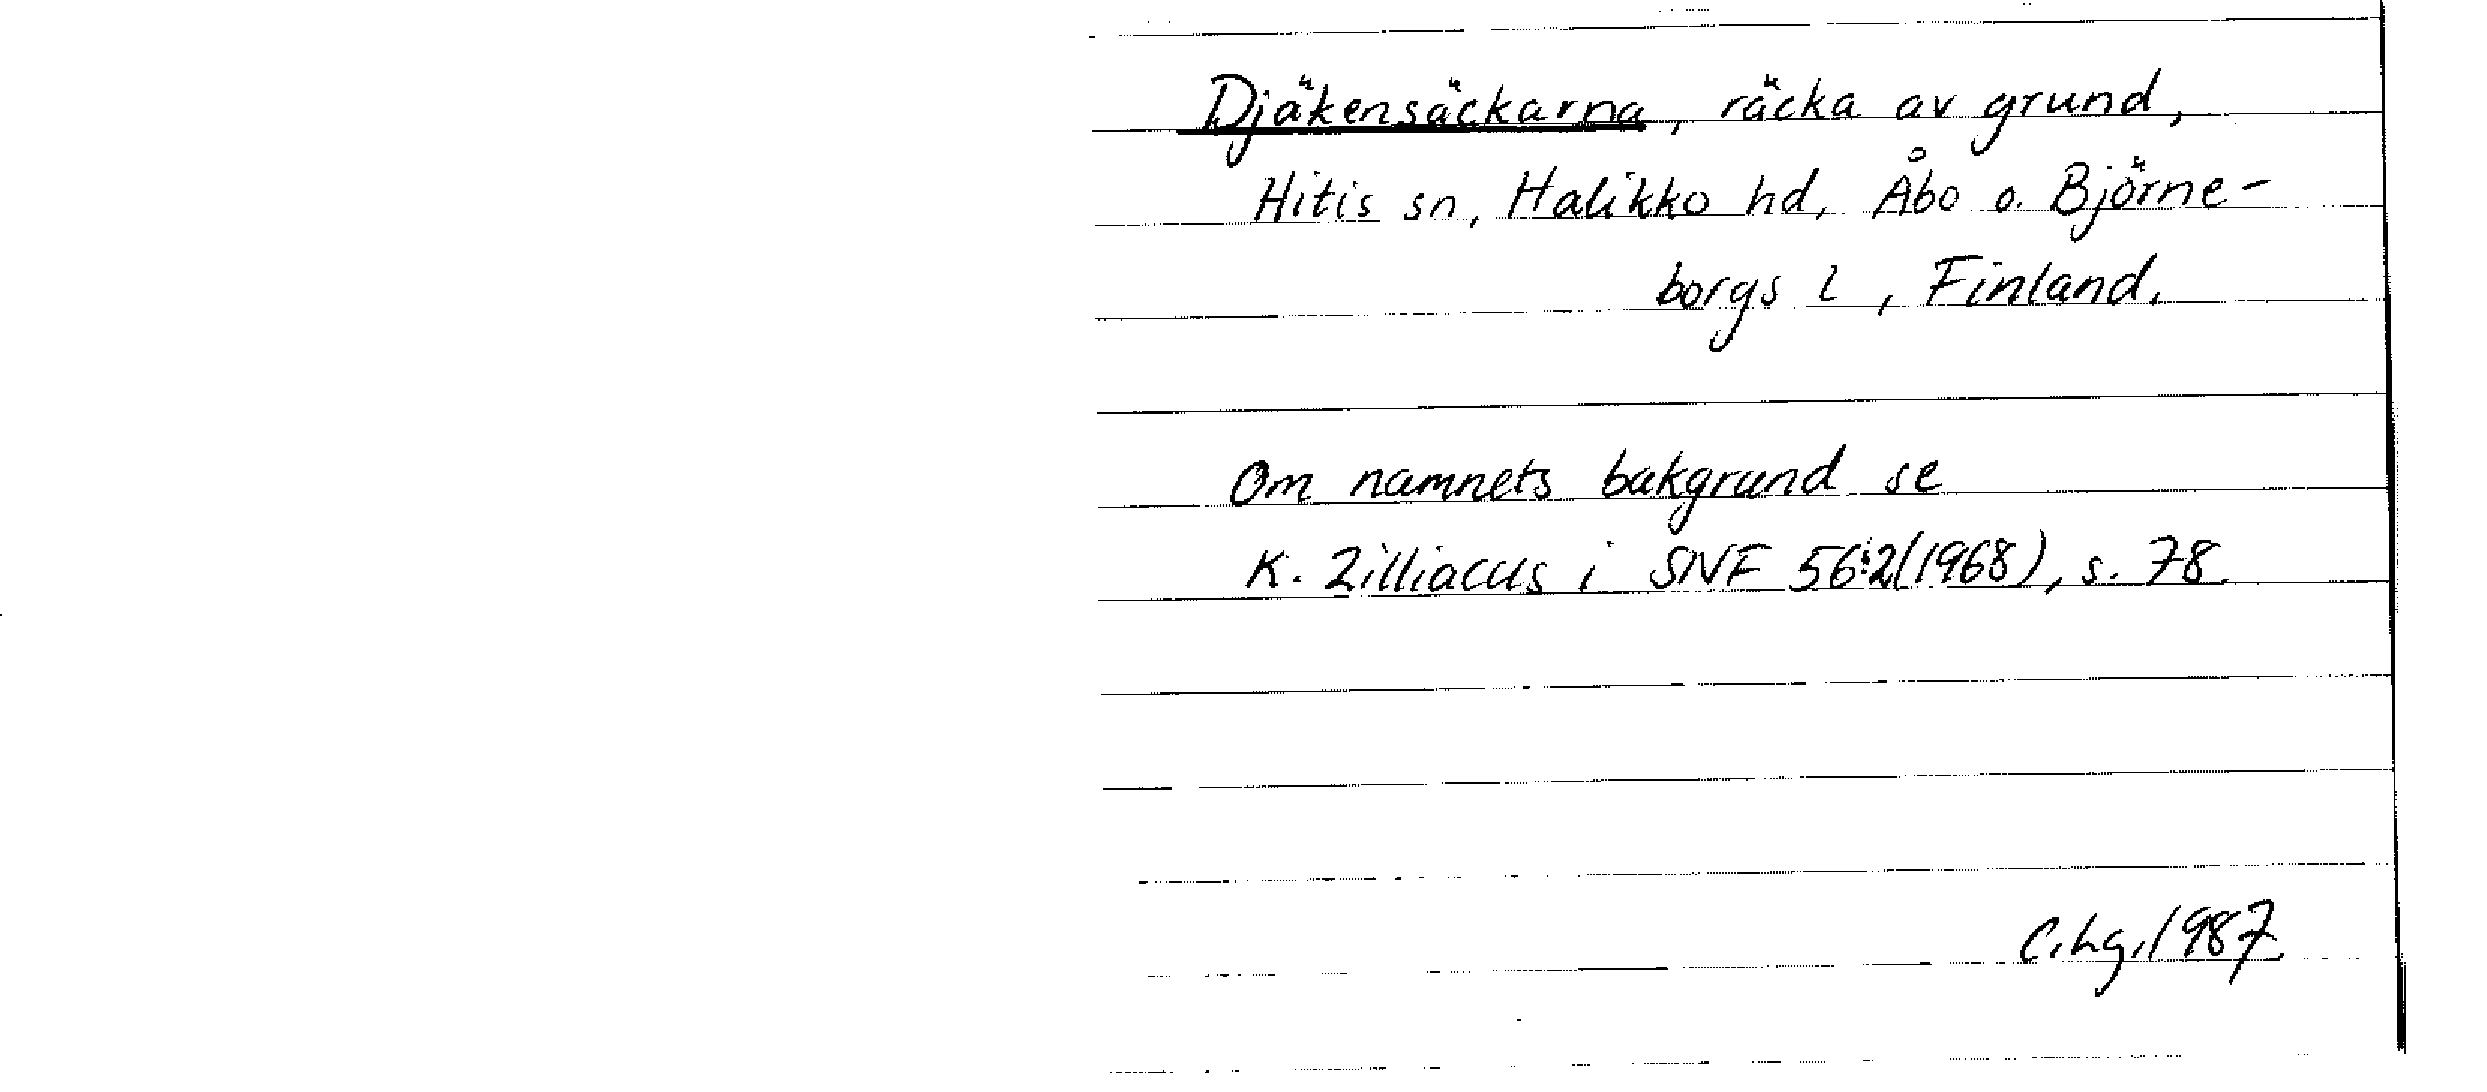 Djäkensäckarna, räcka av grund,
Hitis sn, Halikko hd, Åbo o. Björne-
borgs l, Finland.
Om namnets bakgrund se
K. Zilliacus i SNF 56:2(1968), s. 78.
C.hg.1987.